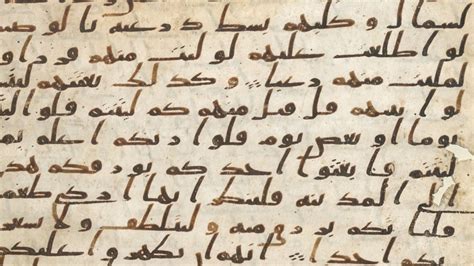 لشمال وكلبهم بسط ذرعيه بالوصيد
لو اطلعت عليهم لوليت منهم فرارا و
لملئت منهم رعبا وكذلك بعثنهم
لوا بينهم قل قيل منهم كم لبثتم قلوا
يوما او بعض يوم قلوا ربكم اعلم بما
لبثتم فابعثوا احدكم بورقكم هذه
الى المدينة فلينظر ايها ازكى طعما
فلياتكم برزق منه وليتلطف ولا يشعرن
بكم احدا انهم ان يظهروا عليكم